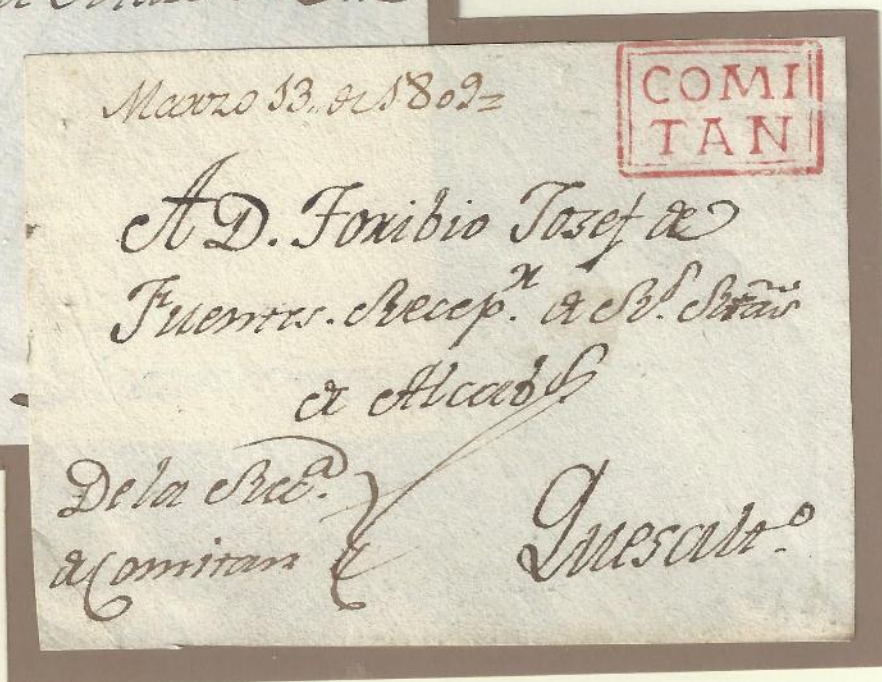 Marzo 13. de 1809=
COMI
TAN
A D. Toribio Josef de
Fuentes. Recep.r de R.s Rtas
de Alcab.s
De la Rec.a
de Comitan
Quesalt.o